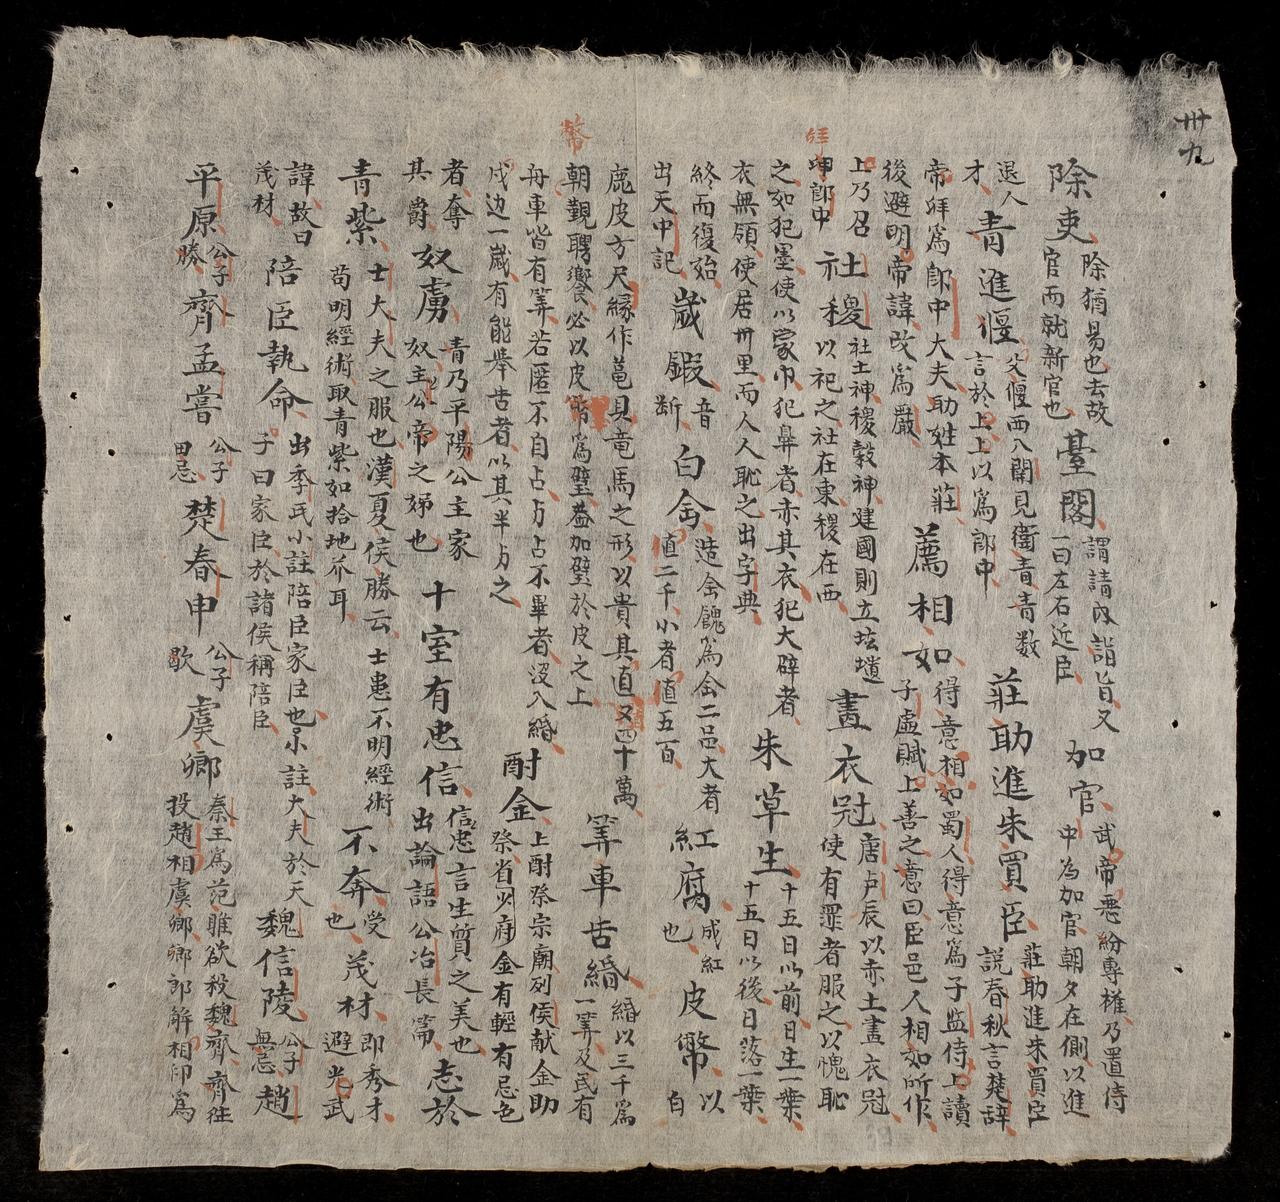 卅九
除吏除猶易也去故官而就新官也臺閣謂請内詣旨又一曰左右近臣加官武帝惡紛專權乃置侍中為加官朝夕在側以進
退人才青進偃父偃西入關見衛青青数言於上上以爲郎中莊助進朱買臣莊助進朱買臣說春秋言楚辞
帝拜爲郎中大夫助姓本莊後避明帝諱改爲嚴薦相如得意相如蜀人得意爲子監侍上讀子虛賦上善之意曰臣邑人相如所作
拜
上乃召坤郎中社稷社土神稷穀神建國則立坛壝以祀之社在東稷在西畫衣冠唐卢辰以赤土畫衣冠使有罪者服之以愧恥
之如犯墨使以蒙巾犯鼻者赤其衣犯大辟者衣無領使居卅里而人人恥之出字典朱草生十五日以前日生一葉十五日以後日落一葉
終而復始出天中記歲鍜音断白金造金餽為金二品大者直二千小者值五百紅腐成紅也皮幣以白
鹿皮方尺緣作黽具竜馬之形以貴其直又四十萬朝覲聘饗必以皮幣爲璧益加璧於皮之上筭車告緡緡以三千爲一筭及民有
幣
舟車皆有筭若匿不自占占不畢者沒入緡戍边一歲有能举告者以其半与之酎金上酎祭宗廟列侯献金助祭省少府金有輕有忌色
者奪其爵奴虜青乃平陽公主家奴主公帝之姊也十室有忠信信忠言生質之美也出論語公冶長篇志於
青紫士大夫之服也漢夏侯勝云士患不明經術苟明經術取青紫如拾地芥耳不奔受也茂材即秀才避光武
諱故曰茂材陪臣執命出季氏小註陪臣家臣也小註大夫於天子曰家臣於諸侯稱陪臣魏信陵公子無忌趙
平原公子勝齊孟嘗公子田忌楚春申公子歇虞卿秦王爲范雎欲殺魏齊齊徃投趙相虞卿卿郎解相印爲